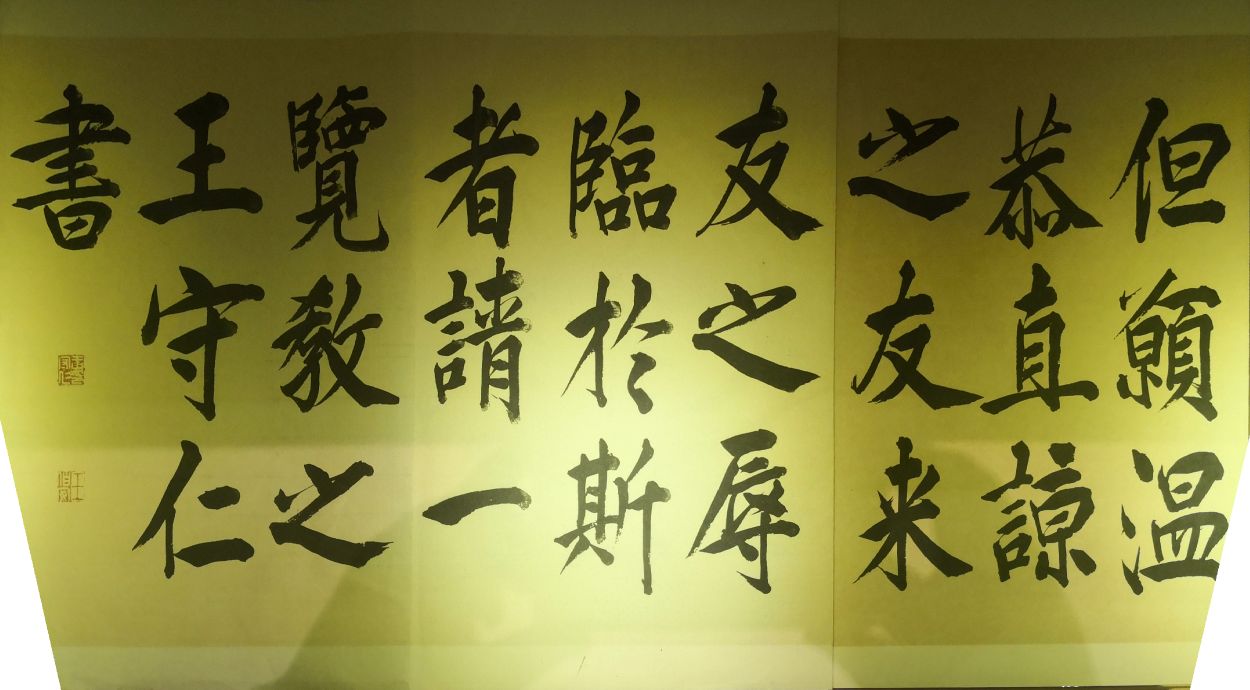 但願温
恭直諒
之友来
友之辱
臨於斯
者請一
覽教之
王守仁
書